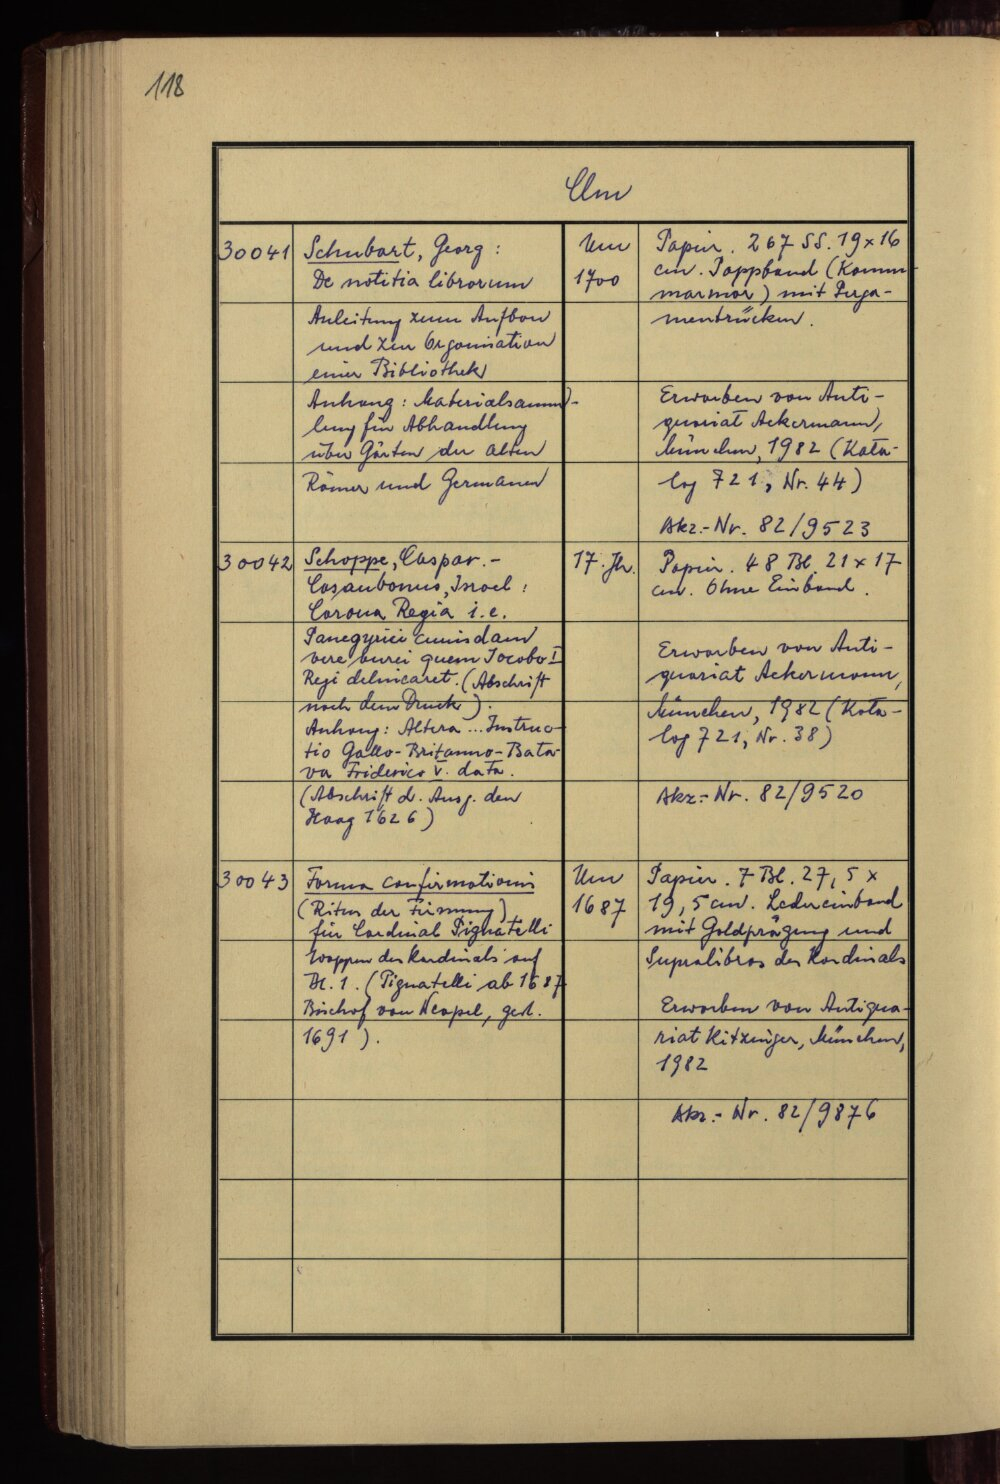 118
Clm
30041
Schubart, Georg:
De notitia librorum
Anleitung zum Aufbau
und zur Organisation
einer Bibliothek
Anhang: Materialsamm-
lung für Abhandlung
über Gärten der alten
Römer und Germanen
Um
1700
Papier. 267 SS. 19x16
cm. Pappband (Kamm-
marmor) mit Perga-
mentrücken.
Erworben von Anti-
quariat Ackermann,
München, 1982 (Kata-
log 721, Nr. 44)
Akz.-Nr. 82/9523
30042
Schoppe, Caspar.-
Casaubonus, Isaac:
Corona Regia i.e.
Panegyrici cuiusdam
vere aurei quem Jacobo I
Regi delinearet. (Abschrift
nach dem Druck).
Anhang: Altera ... Instruc-
tio Gallo-Britanno-Bata-
va Friderico V. data.
(Abschrift d. Ausg. den
Haag 1626)
17. Jh.
Papier. 48 Bl. 21x17
cm. Ohne Einband.
Erworben von Anti-
quariat Ackermann,
München, 1982 (Kata-
log 721, Nr. 38)
Akz.-Nr. 82/9520
30043
Forma confirmationis
(Ritus der Firmung)
für Cardinal Pignatelli
Wappen des Kardinals auf
Bl. 1. (Pignatelli ab 1687
Bischof von Neapel, gest.
1691).
Um
1687
Papier. 7 Bl. 27,5 x
19,5 cm. Ledereinband
mit Goldprägung und
Supralibros des Kardinals
Erworben von Antiqua-
riat Kitzinger, München,
1982
Akz.-Nr. 82/9876